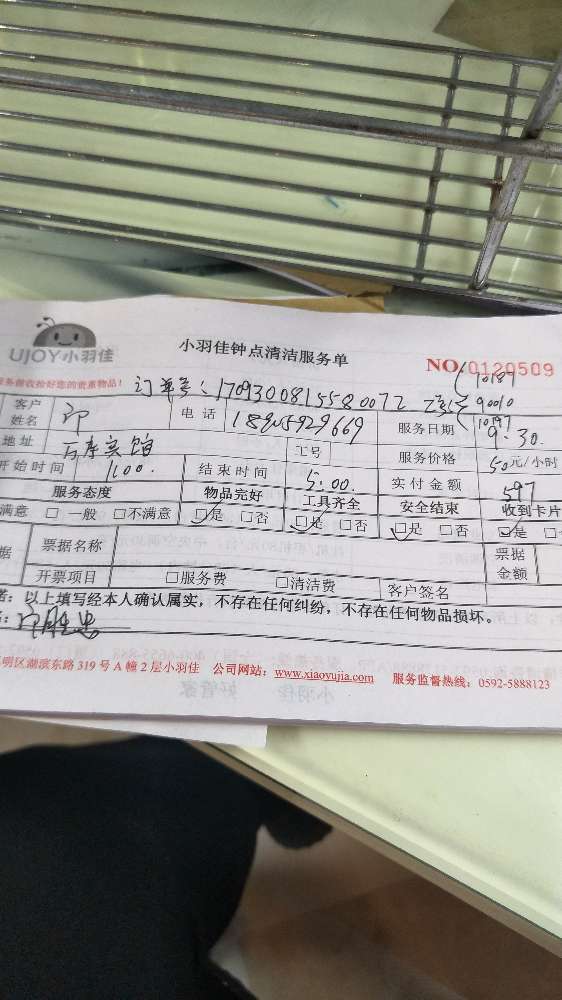 UJOY小羽佳
小羽佳钟点清洁服务单
NO 0120509
服务前收拾好您的贵重物品！
订单号：17093008155580072
10187
90010
10197
客户姓名
电话
服务日期
9.30.
地址
宾馆
工号
服务价格
50元/小时
开始时间
1:00.
结束时间
5:00.
实付金额
597
服务态度
物品完好
工具齐全
安全结束
收到卡片
满意 □一般 □不满意
是 □否
是 □否
□是 □否
是
据
票据名称
票据金额
开票项目
□服务费
□清洁费
客户签名
者：以上填写经本人确认属实，不存在任何纠纷，不存在任何物品损坏。
明区湖滨东路319号A幢2层小羽佳 公司网站：www.xiaoyujia.com 服务监督热线：0592-5888123